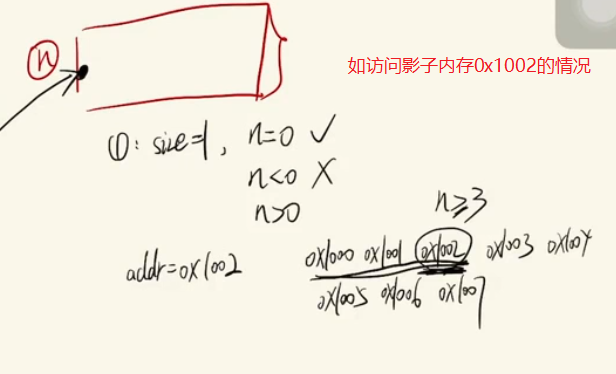 n
如访问影子内存0x1002的情况
①: size=1, n=0 ✓
n<0 ✗
n>0
n≥3
addr=0x1002
0x1000 0x1001 0x1002 0x1003 0x1004
0x1005 0x1006 0x1007